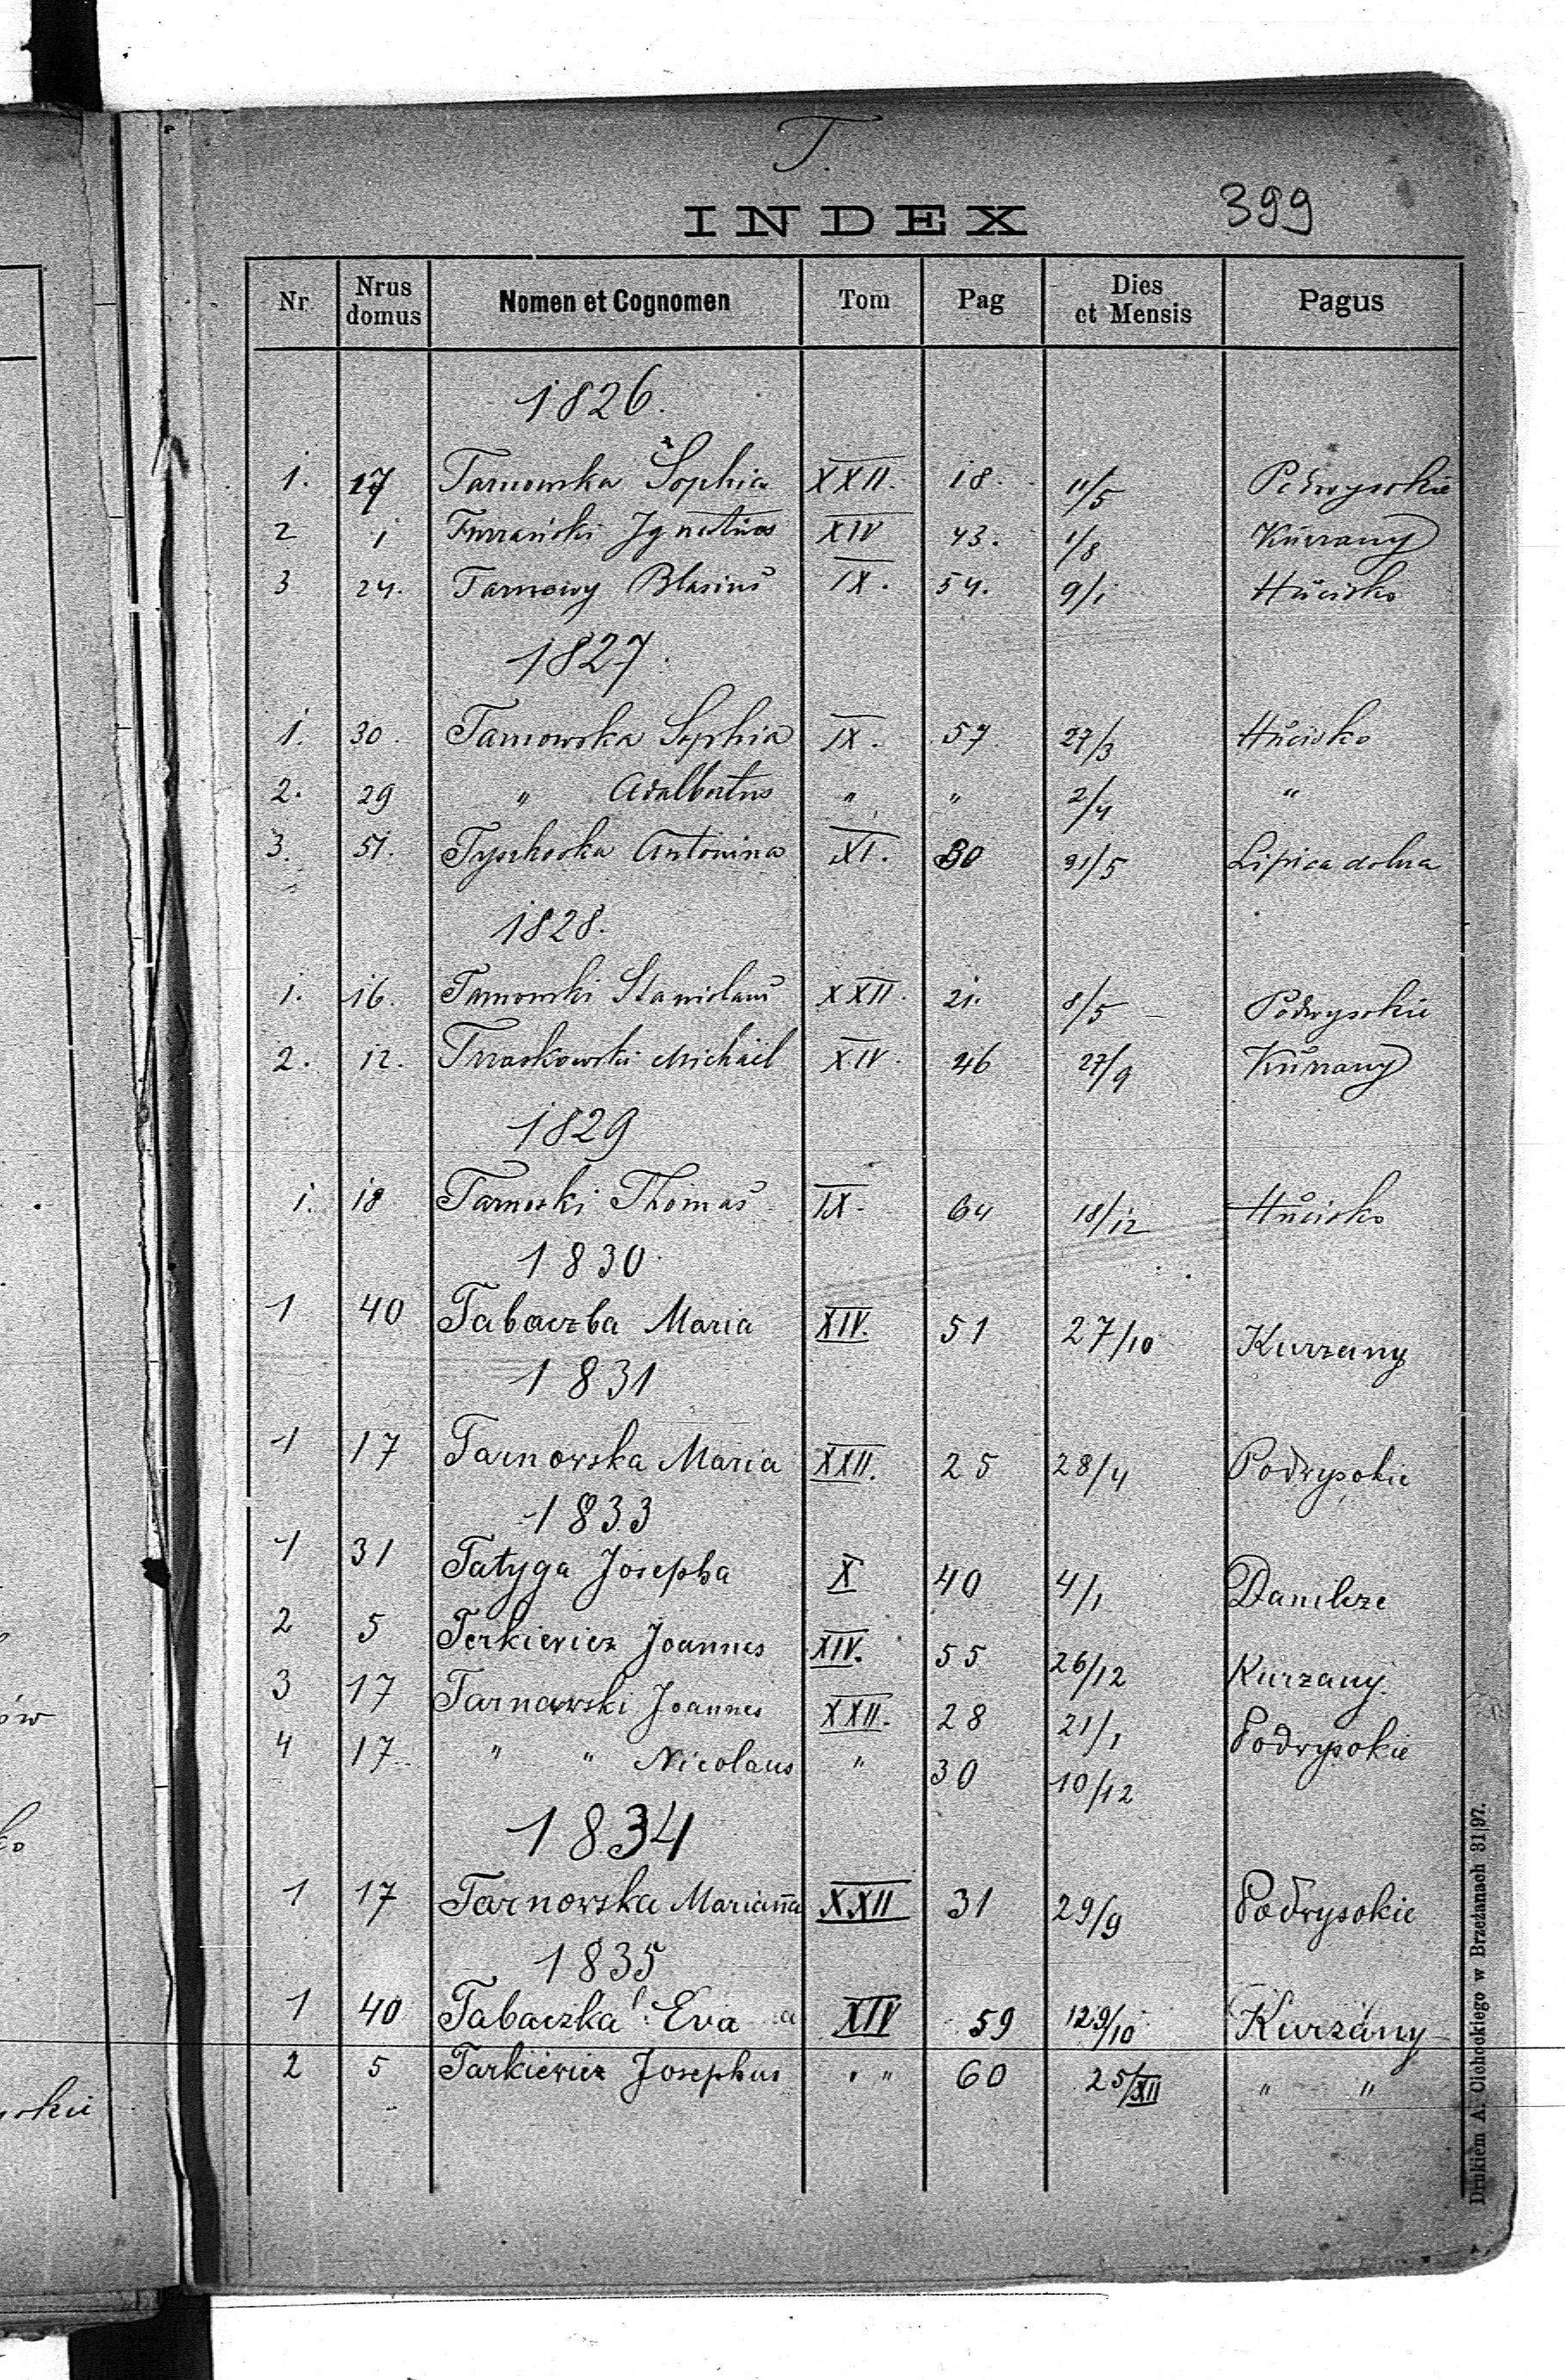 T.
INDEX 399
Nr Nrus domus Nomen et Cognomen Tom Pag Dies et Mensis Pagus
1826.
1. 17 Tarnowska Sophia XXII. 18. 11/5 Podwysokie
2 1 Ignatius XIV 43. 1/8 Kurzany
3 24. Tarnowy Blasius IX. 54. 9/1 Hucisko
1827.
1. 30. Tarnowska Sophia IX. 57 27/3 Hucisko
2. 29 " Adalbertus " " 2/4 "
3. 51. Antonina XI. 30 31/5 Lipica dolna
1828.
1. 16. Tarnowski Stanislaus XXII. 21. 8/5 Podwysokie
2. 12. Trzaskowski Michael XIV. 46 27/9 Kurzany
1829
1. 18 Tarnoski Thomas IX. 64 18/12 Hucisko
1830.
1 40 Tabaczba Maria XIV. 51 27/10 Kurzany
1831
1 17 Tarnowska Maria XXII. 25 28/4 Podwysokie
1833
1 31 Tatyga Josepha X 40 4/1 Danilcze
2 5 Terkiewicz Joannes XIV. 55 26/12 Kurzany.
3 17 Tarnawski Joannes XXII. 28 21/1 Podwysokie
4 17 " " Nicolaus " 30 10/12
1834
1 17 Tarnowska Marianna XXII 31 29/9 Podwysokie
1835
1 40 Tabaczka Eva XIV 59 129/10 Kurzany
2 5 Tarkiewicz Josephus " " 60 25/XII " "
Drukiem A. Cichockiego w Brzeżanach 31|97.
ów
ko
okie